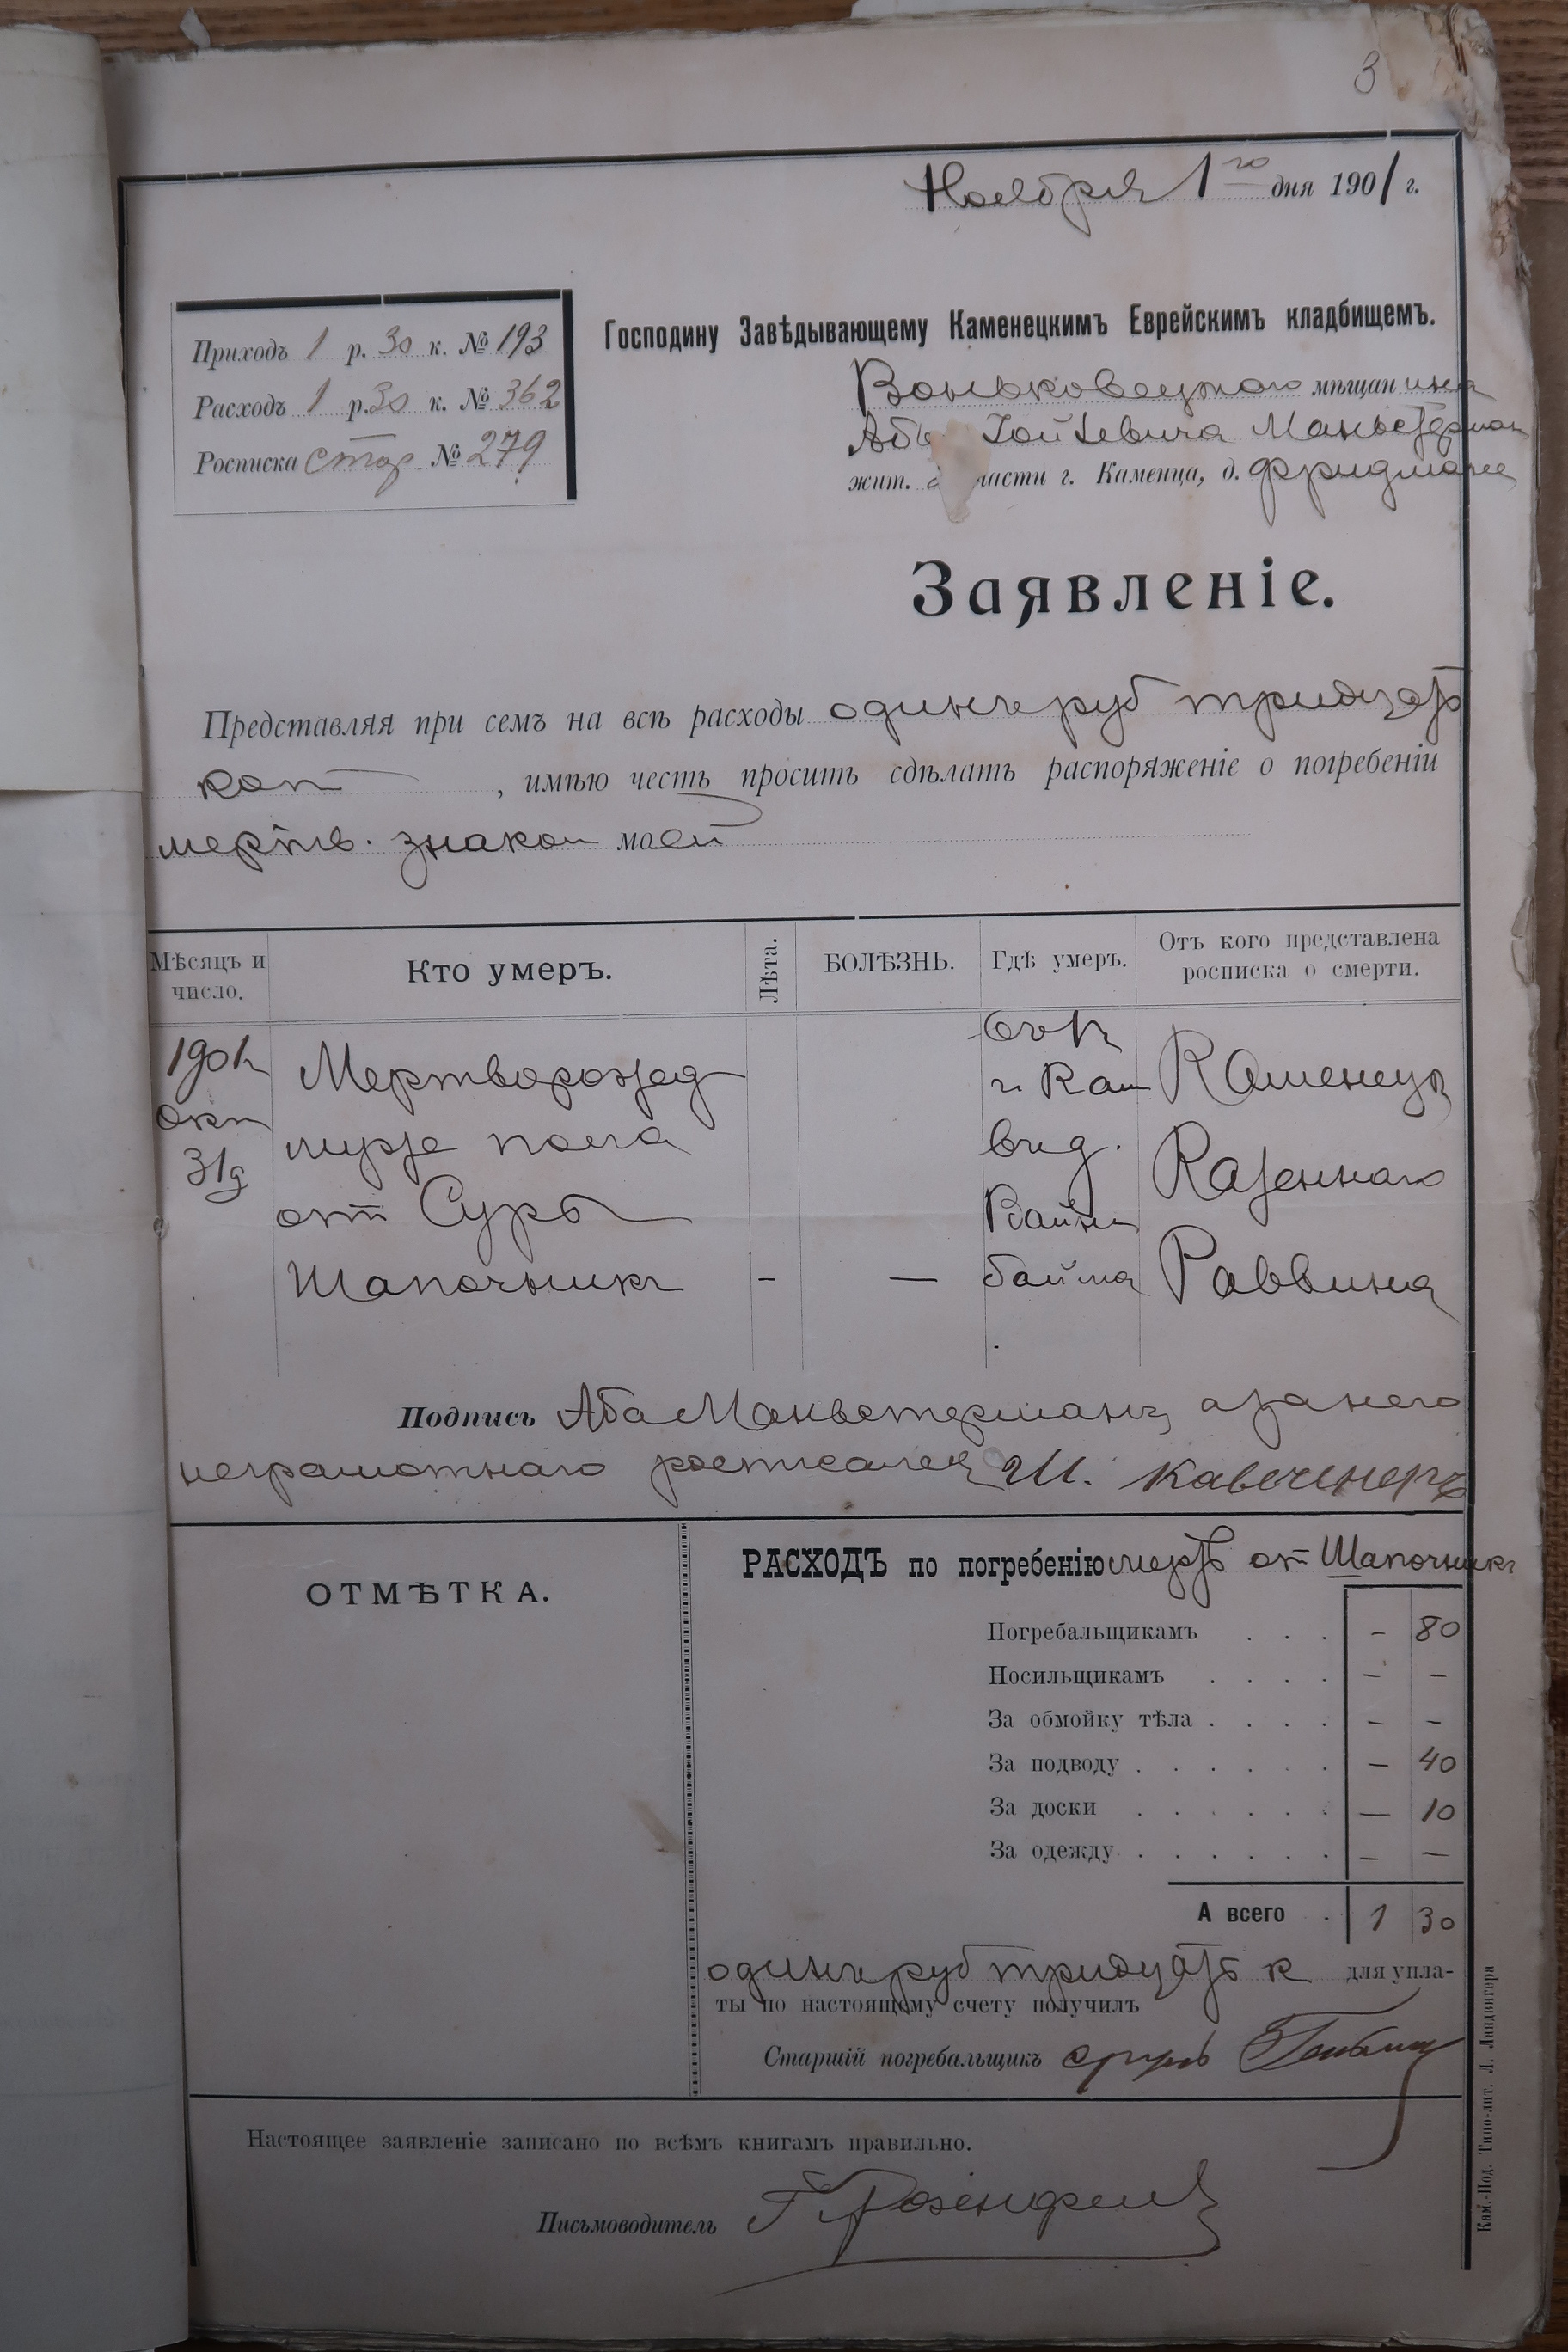 3
Ноября 1го дня 1901 г.
Приходъ 1 р. 30 к. № 193
Расходъ 1 р. 30 к. № 362
Росписка стар № 279
Господину Завѣдывающему Каменецкимъ Еврейскимъ кладбищемъ.
Воньковецкого мѣщанина
Абы Маньстерман
жит. части г. Каменца, д. Фридмана
Заявленіе.
Представляя при семъ на всѣ расходы одинъ руб тридцать
коп , имѣю честь просить сдѣлать распоряженіе о погребеніи
мертв. знаком моей
Мѣсяцъ и число.
Кто умеръ.
Лѣта.
БОЛѢЗНЬ.
Гдѣ умеръ.
Отъ кого представлена росписка о смерти.
1901
окт
31д
Мертворожд
муж пола
от Суры
Шапочникъ
-
—
г. Кам
Вайн
байма
Каменец
Казеннаго
Раввина
Подпись Аба Маньстерманъ, а за него
неграмотнаго росписался Ш.
ОТМѢТКА.
РАСХОДЪ по погребенію от Шапочникъ
Погребальщикамъ . . . - 80
Носильщикамъ . . . . - -
За обмойку тѣла . . . . - -
За подводу . . . . . . - 40
За доски . . . . . . - 10
За одежду . . . . . . - -
А всего . 1 30
одинъ руб тридцать к для упла-
ты по настоящему счету получилъ
Старшій погребальщикъ
Настоящее заявленіе записано по всѣмъ книгамъ правильно.
Письмоводитель Г. Розенфельд
Кам.-Под. Типо-лит. Л. Ландвигера